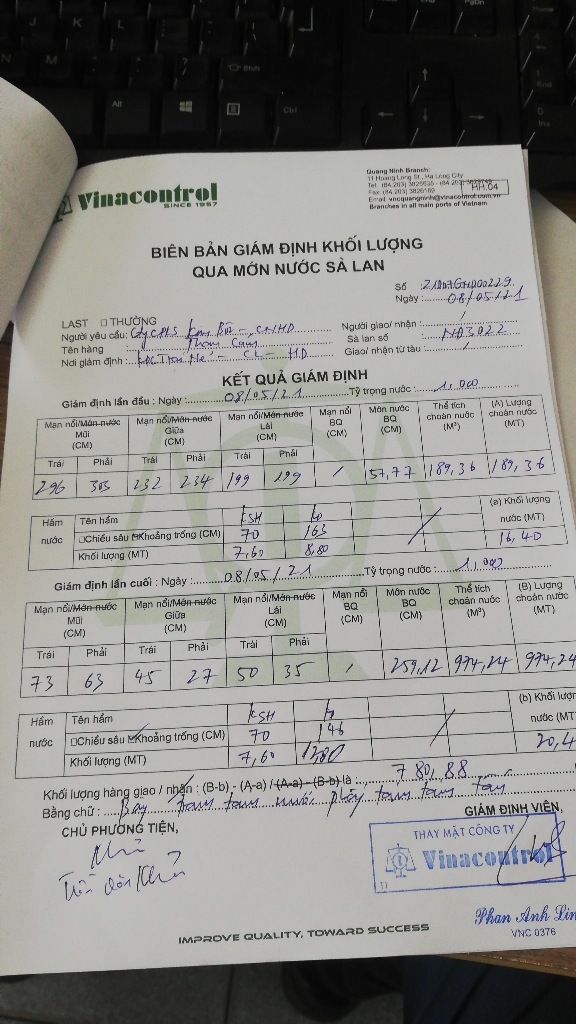 Vinacontrol
SINCE 1957
Quang Ninh Branch:
11 Hoang Long St., Ha Long City
Branches in all main ports of Vietnam
HH.04
BIÊN BẢN GIÁM ĐỊNH KHỐI LƯỢNG
QUA MỚN NƯỚC SÀ LAN
Số
Ngày: 08/05/21
LAST □ THƯỜNG
Người yêu cầu:
Người giao/ nhận : /
Tên hàng Than Cám
Sà lan số NĐ3022
Nơi giám định :
Giao/ nhận từ tàu : /
KẾT QUẢ GIÁM ĐỊNH
Giám định lần đầu : Ngày : 08/05/21 Tỷ trọng nước : 1,000
Mạn nổi/Mớn nước Mũi (CM) Mạn nổi/Mớn nước Giữa (CM) Mạn nổi/Mớn nước Lái (CM) Mạn nổi BQ (CM) Mớn nước BQ (CM) Thể tích choán nước (M³) (A) Lượng choán nước (MT)
Trái Phải Trái Phải Trái Phải
296 303 232 234 199 199 / 57,77 189,36 189,36
Hầm nước Tên hầm KSH (a) Khối lượng nước (MT)
□Chiều sâu □Khoảng trống (CM) 70 163
Khối lượng (MT) 7,60 8,80 16,40
Giám định lần cuối : Ngày : 08/05/21 Tỷ trọng nước : 1,000
Mạn nổi/Mớn nước Mũi (CM) Mạn nổi/Mớn nước Giữa (CM) Mạn nổi/Mớn nước Lái (CM) Mạn nổi BQ (CM) Mớn nước BQ (CM) Thể tích choán nước (M³) (B) Lượng choán nước (MT)
Trái Phải Trái Phải Trái Phải
73 63 45 27 50 35 / 259,12 974,24 974,24
Hầm nước Tên hầm KSH (b) Khối lượng nước (MT)
□Chiều sâu □Khoảng trống (CM) 70 146
Khối lượng (MT) 7,60 20,4
Khối lượng hàng giao / nhận : (B-b) - (A-a) / (A-a) - (B-b) là : 780,88
Bằng chữ : Bảy trăm tám mươi phẩy tám tám tấn
CHỦ PHƯƠNG TIỆN,
GIÁM ĐỊNH VIÊN,
THAY MẶT CÔNG TY
Vinacontrol
Phan Anh Lin
VNC 0376
IMPROVE QUALITY, TOWARD SUCCESS